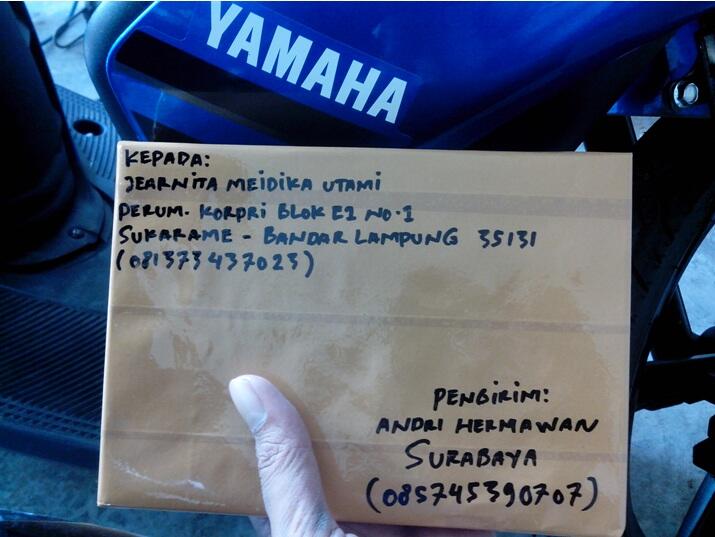 YAMAHA
KEPADA:
JEARNITA MEIDIKA UTAMI
PERUM. KORPRI BLOK E1 NO.1
SUKARAME - BANDAR LAMPUNG 35131
(081373437023)
PENGIRIM:
ANDRI HERMAWAN
SURABAYA
(085745390707)